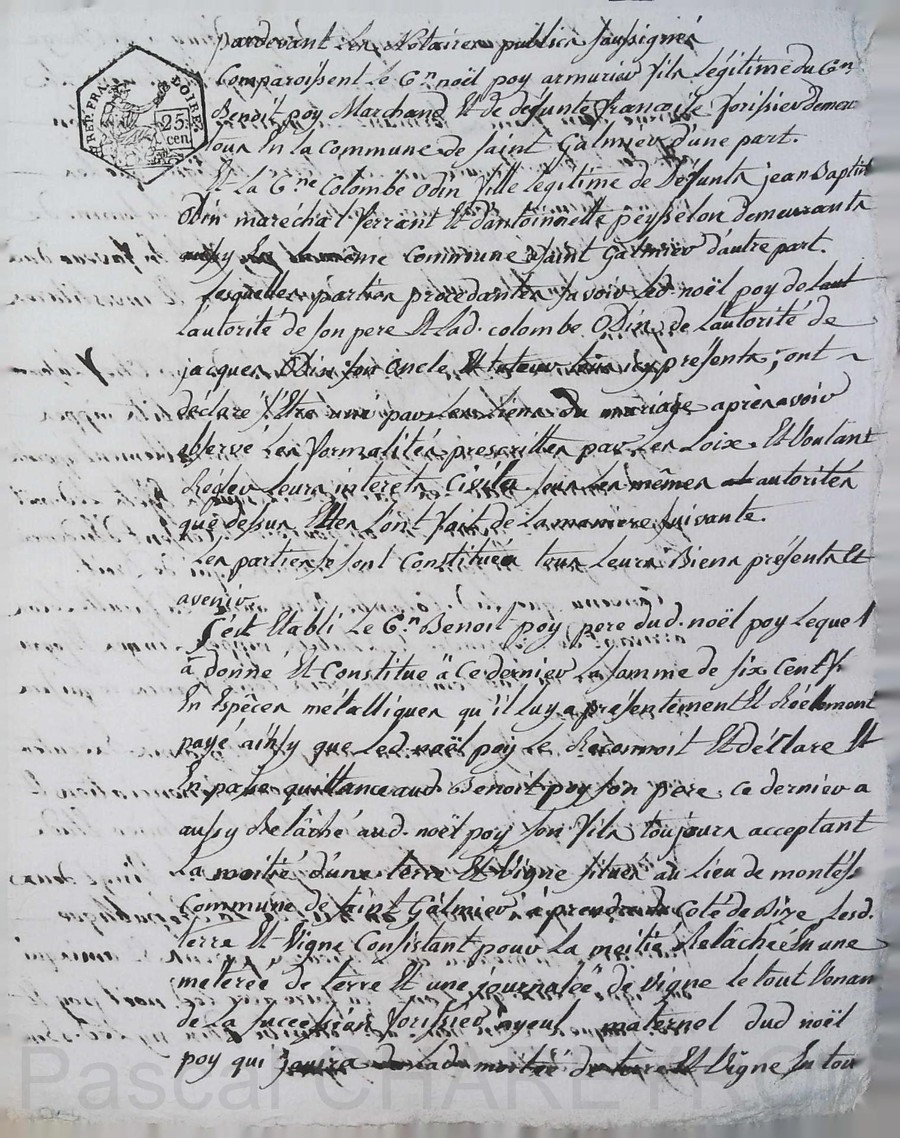 pardevant Les Notaires publics soussignés
Comparoissent Le Cn noël poy armurier fils Légitime du Cn
Benoit poy Marchand Et de défunte françoise forissier demeu
REP. FRA.
DOIRE
25
cen
rans En la Commune de Saint Galmier d'une part.
Et La Cne Colombe Odin fille légitime de Défunts jean Baptist
Odin maréchal ferrant Et d'antoinette peysselon demeurants
aussy En la même Commune de Saint Galmier d'autre part.
Lesquelles parties procédantes savoir Led. noël poy de Laut
L'autorité de son pere Et Lad. colombe Odin de L'autorité de
jacques Odin son oncle Et tuteur tous icy présents, ont
déclaré s'Etre uni par Les Liens du mariage après avoir
observé Les formalités prescrittes par Les Loix. Et Voulant
Régler Leurs interets Civils sous Les mêmes autorités
que dessus Elles L'ont fait de La maniere suivante.
Les parties se sont Constituées tous Leurs Biens présents Et
avenir.
S'Est Etabli Le Cn Benoit poy pere dud. noël poy Lequel
à donné Et Constitué à Ce dernier La somme de six Cent
En Espèces métalliques qu'il Luy a présentement Et Réellement
payé ainsy que Led noël poy Le Reconnoit Et déclare Et
En passe quittance aud. Benoit poy son père. Ce dernier a
aussy Relâché aud. noël poy son fils toujours acceptant
La moitié d'une terre Et Vigne située au Lieu de
Commune de Saint Galmier à prendre du Coté de Bize Lesd.
terre Et Vigne Consistant pour La moitié Relâchée En une
méterée de terre Et une journalée de Vigne Le tout Venan
de La succession forissier ayeul maternel dud noël
poy qui jouira de Lad moitié de terre Et Vigne En tou
Pascal CHARETRON